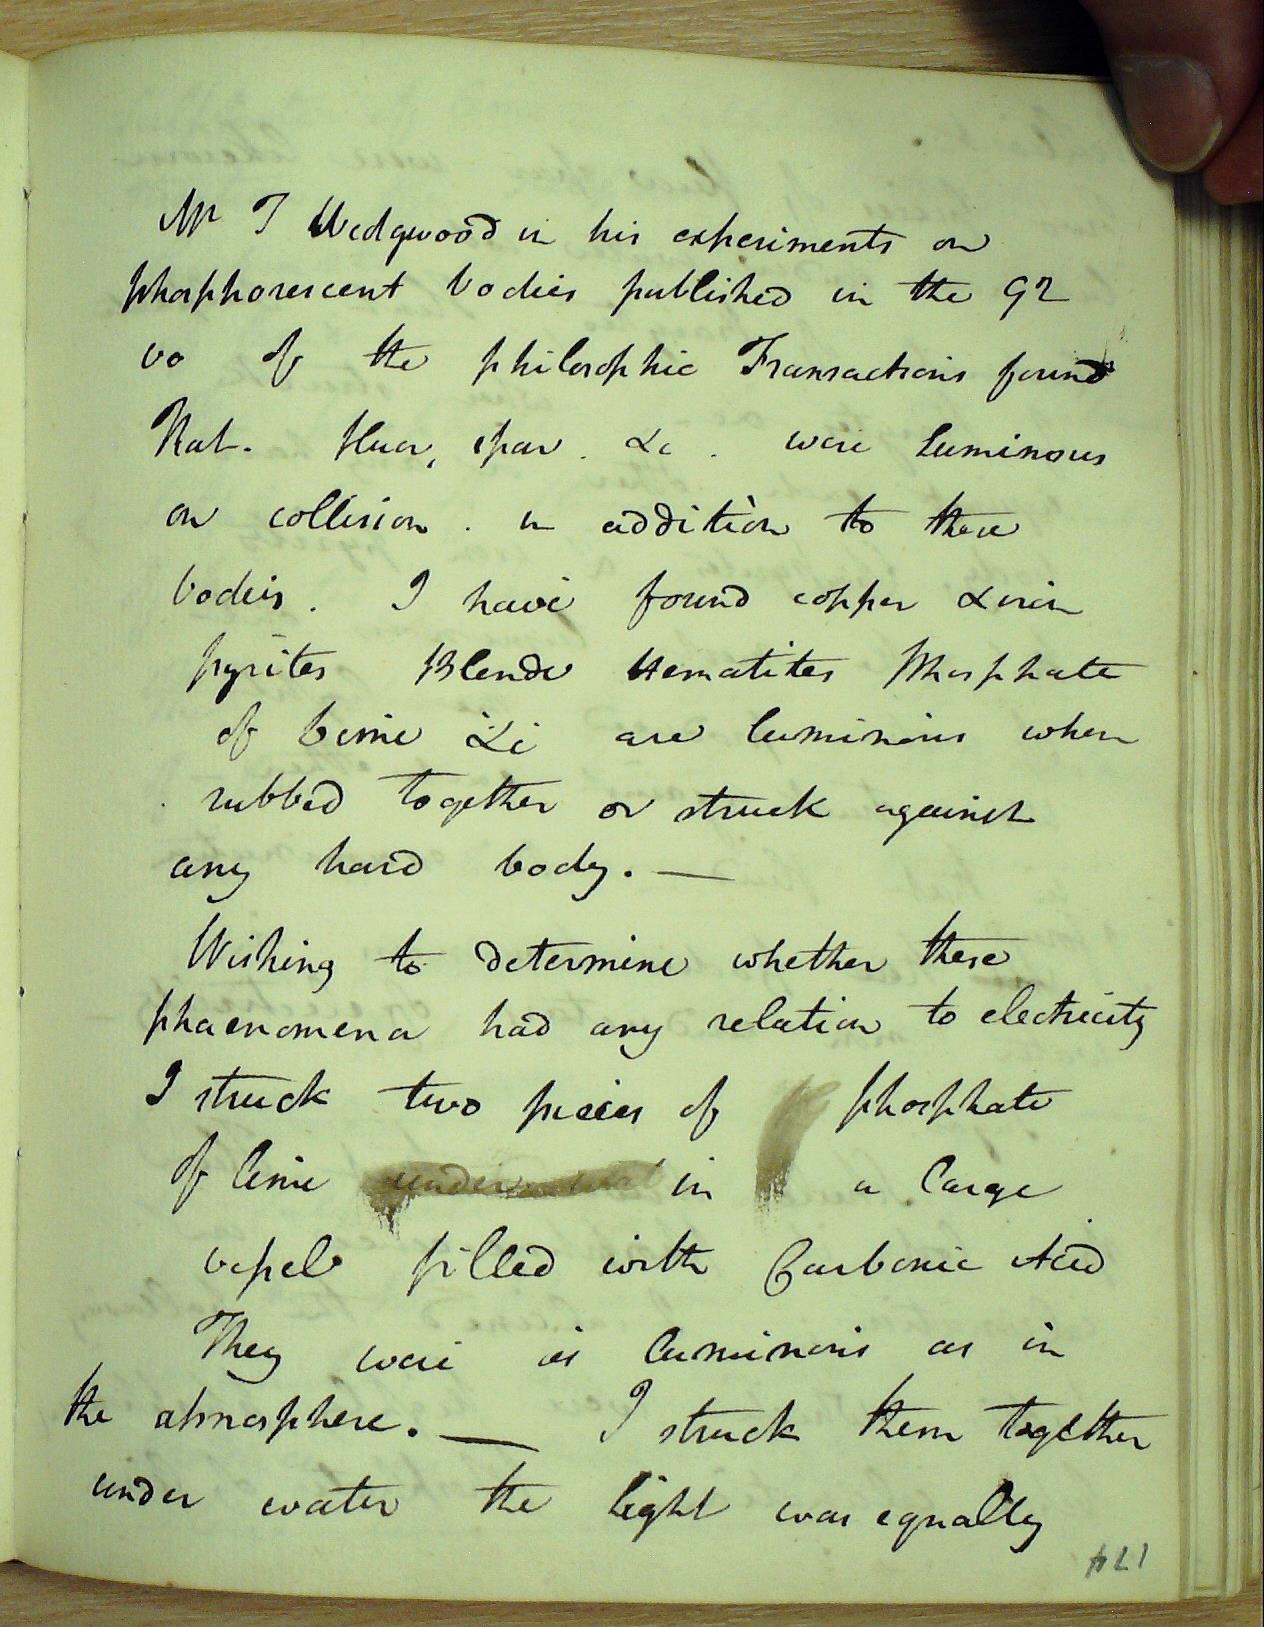 Mr T Wedgwood in his experiments on
phosphorescent bodies published in the 92
vo of the philosophic Transactions found
that. fluor, spar. &c. were luminous
on collision. in addition to these
bodies. I have found copper & iron
pyrites Blende Hematites Phosphate
of lime &c are luminous when
rubbed together or struck against
any hard body. —
Wishing to determine whether these
phaenomena had any relation to electricity
I struck two pieces of phosphate
of lime under in a large
vessel filled with Carbonic Acid
They were as luminous as in
the atmosphere. — I struck them together
under water the light was equally